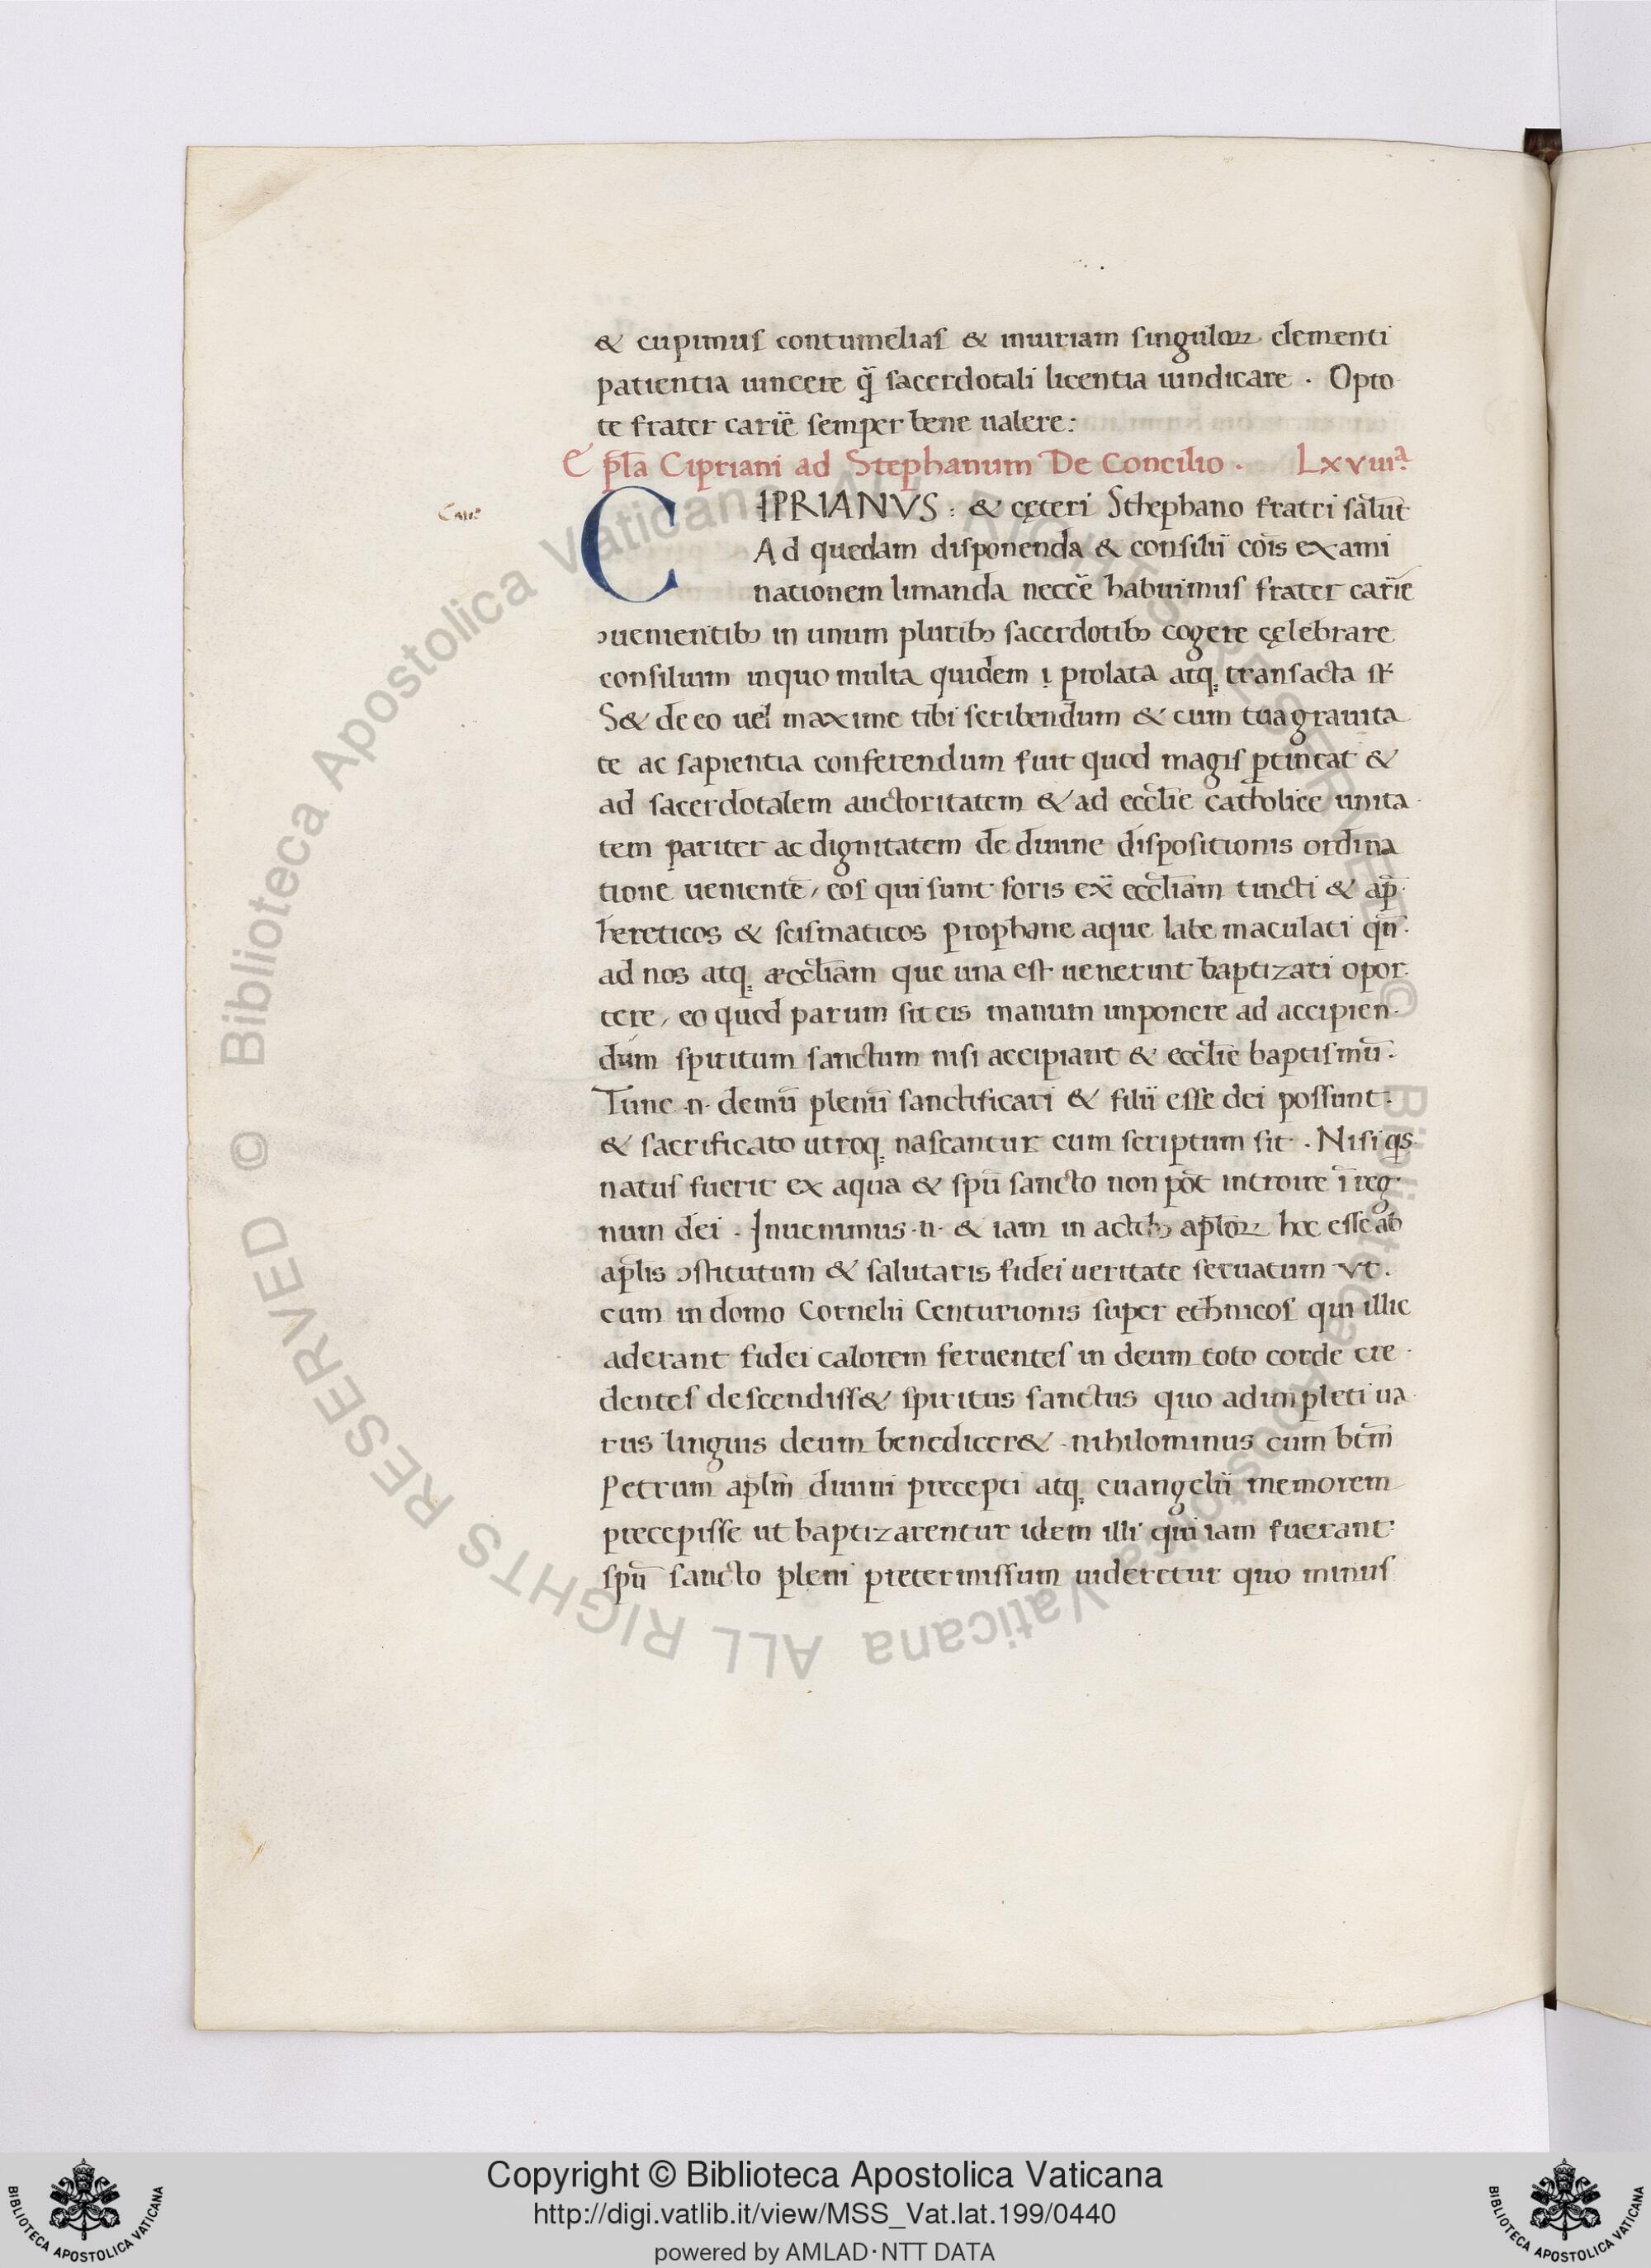 & cupimus contumelias & iniuriam singuloꝝ clementi
patientia uincere q̄ sacerdotali licentia uindicare . Opto
te frater cariē semper bene ualere:
Epl̄a Cipriani ad Stephanum De Concilio . Lxviiiᵃ.
CIPRIANVS : & cęteri Sthephano fratri salūt
Ad quedam disponenda & consilii cōis exami
nationem limanda neccē habuimus frater cariē
ꝯuenientibꝫ in unum pluribꝫ sacerdotibꝫ cogere cęlebrare
consilium inquo multa quidem prolata atqꝫ transacta st̄
S& de eo uel maxime tibi scribendum & cum tua grauita
te ac sapientia conferendum fuit quod magis ptineat &
ad sacerdotalem auctoritatem & ad eccl̄ie catholice unita
tem pariter ac dignitatem de diuine dispositionis ordina
tione uenientē, eos qui sunt foris ex̄ eccl̄iam tincti & ap̄
hereticos & scismaticos prophane aque labe maculati qn̄
ad nos atqꝫ æccl̄iam que una est uenerint baptizari opor
tere, eo quod parum sit eis manum imponere ad accipien
dum spiritum sanctum nisi accipiant & eccl̄ie baptismū.
Tunc .n. demū plenū sanctificari & filii esse dei possunt.
& sacrificato utroqꝫ nascantur cum scriptum sit . Nisi qs
natus fuerit ex aqua & spū sancto non pōt introire ī reg
num dei . Inuenimus .n. & iam in actibꝫ apl̄oꝝ hoc esse ab
apl̄is ꝯstitutum & salutaris fidei ueritate seruatum vt.
cum in domo Cornelii Centurionis super ethnicos qui illic
aderant fidei calorem feruentes in deum toto corde cre
dentes descendiss& spiritus sanctus quo adimpleti ua
riis linguis deum benedicer& . nihilominus cum btm̄
Petrum aplm̄ diuini precepti atqꝫ euangelii memorem
precepisse ut baptizarentur idem illi qui iam fuerant
spū sancto pleni pretermissum uideretur quo minus
Biblioteca Apostolica Vaticana ALL RIGHTS RESERVED ©
Biblioteca Apostolica Vaticana ALL RIGHTS RESERVED ©
Copyright © Biblioteca Apostolica Vaticana
http://digi.vatlib.it/view/MSS_Vat.lat.199/0440
powered by AMLAD·NTT DATA
BIBLIOTECA APOSTOLICA VATICANA
BIBLIOTECA APOSTOLICA VATICANA